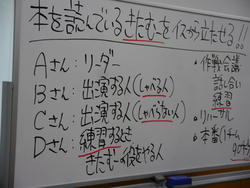 本を読んでいるきたむーをイスから立たせる!!
Aさん:リーダー
Bさん:出演する人(しゃべる人)
Cさん:出演する人(しゃべらない人)
Dさん:練習するとき
きたむーの役をやる人
・作戦会議
話し合い
練習
・リハーサル
・本番1チーム